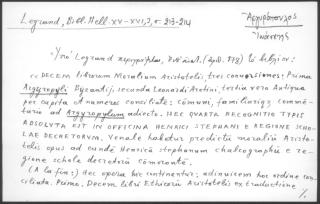 Legrand, Bibl. Hell. XV-XVI, 3, σ. 213-214
Ἀργυρόπουλος
Ἰωάννης
Ὑπὸ Legrand περιγράφεται, τὸ ἑξῆς:
"DECEM librorum Moralium Aristotelis, tres conversiones: Prima
Argyropyli Byzantij, secunda Leonardi Aretini, tertia vero Antiqua
per capita et numeros conciliate: cōmuni, familiariq; commē-
tario ad Argyropylum adiecto. HEC QUARTA RECOGNITIO TYPIS
ABSOLUTA EST IN OFFICINA HENRICI STEPHANI E REGIONE SCHO-
LAE DECRETORUM. Venale habetur predictū moraliū Aristo-
telis opus ad eundē Henricū stephanum chalcographū e re-
gione schole decretorū cōmorantē.
(A la fin:) Hec opera hic continentur; adiuicem hoc ordine con-
ciliata. Primo. Decem libri Ethicorū Aristotelis ex traductione